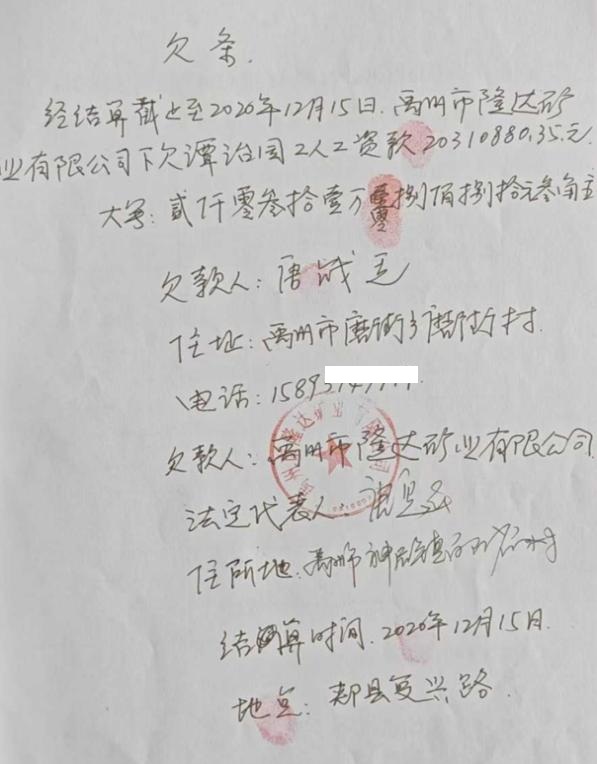 欠条.
经结算截止至2020年12月15日.禹州市隆达矿
业有限公司下欠谭治国工人工资款20310880.35元.
大写:贰仟零叁拾壹万零捌佰捌拾元叁角
欠款人:唐
住址:禹州市磨街乡磨街村.
电话:15893
欠款人:禹州市隆达矿业有限公司
法定代表人:
住所地:禹州市神垕镇
结算时间.2020年12月15日.
地点:郏县复兴路.